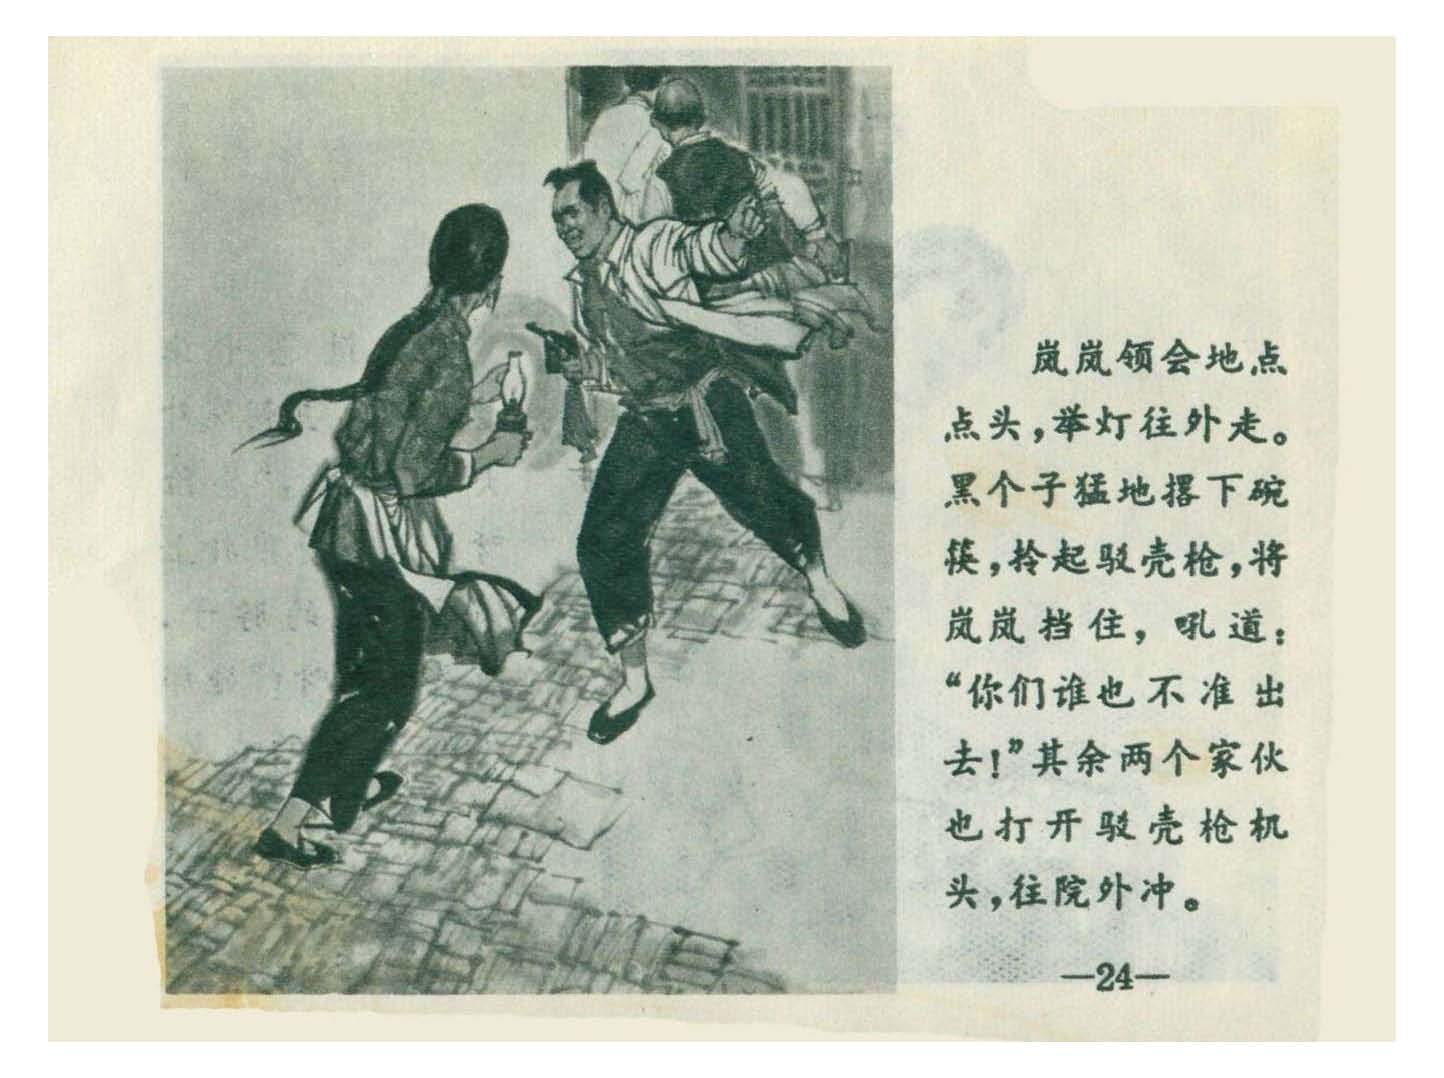 岚岚领会地点
点头，举灯往外走。
黑个子猛地撂下碗
筷，拎起驳壳枪，将
岚岚挡住，吼道：
“你们谁也不准出
去！”其余两个家伙
也打开驳壳枪机
头，往院外冲。
—24—